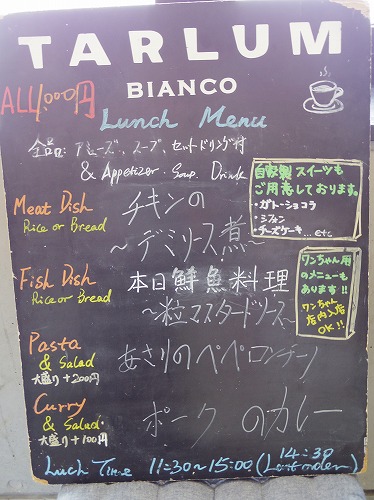 TARLUM
BIANCO
ALL1,000円
Lunch Menu
全品: アミューズ、スープ、セットドリンク付
& Appetizer. Soup. Drink
自家製スイーツも
ご用意しております。
・ガトーショコラ
・シフォン
・チーズケーキ...etc
Meat Dish
Rice or Bread
チキンの
~デミソース煮~
Fish Dish
Rice or Bread
本日鮮魚料理
~粒マスタードソース~
ワンちゃん用
のメニューも
あります!!
ワンちゃん
店内入店
OK!!
Pasta
& Salad
大盛り+200円
あさりのペペロンチーノ
Curry
& Salad
大盛り+100円
ポークのカレー
Luch Time 11:30~15:00 (14:30 Lastorder)